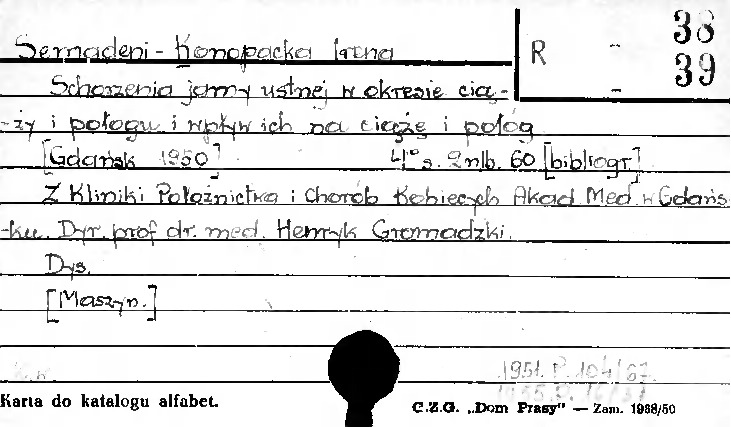 Semadeni - Konopacka Irena
R - 38
- 39
Schorzenia jamy ustnej w okresie cią-
-ży i połogu i wpływ ich na ciążę i połóg
[Gdańsk 1950] 4° s. 2 nlb. 60 [bibliogr]
Z Kliniki Położnictwa i Chorób Kobiecych Akad Med. w Gdańs-
-ku. Dyr. prof dr. med. Henryk Gromadzki.
Dys.
[Maszyn.]
1951. P. 104/67.
Karta do katalogu alfabet.
C.Z.G. „Dom Prasy" — Zam. 1968/50